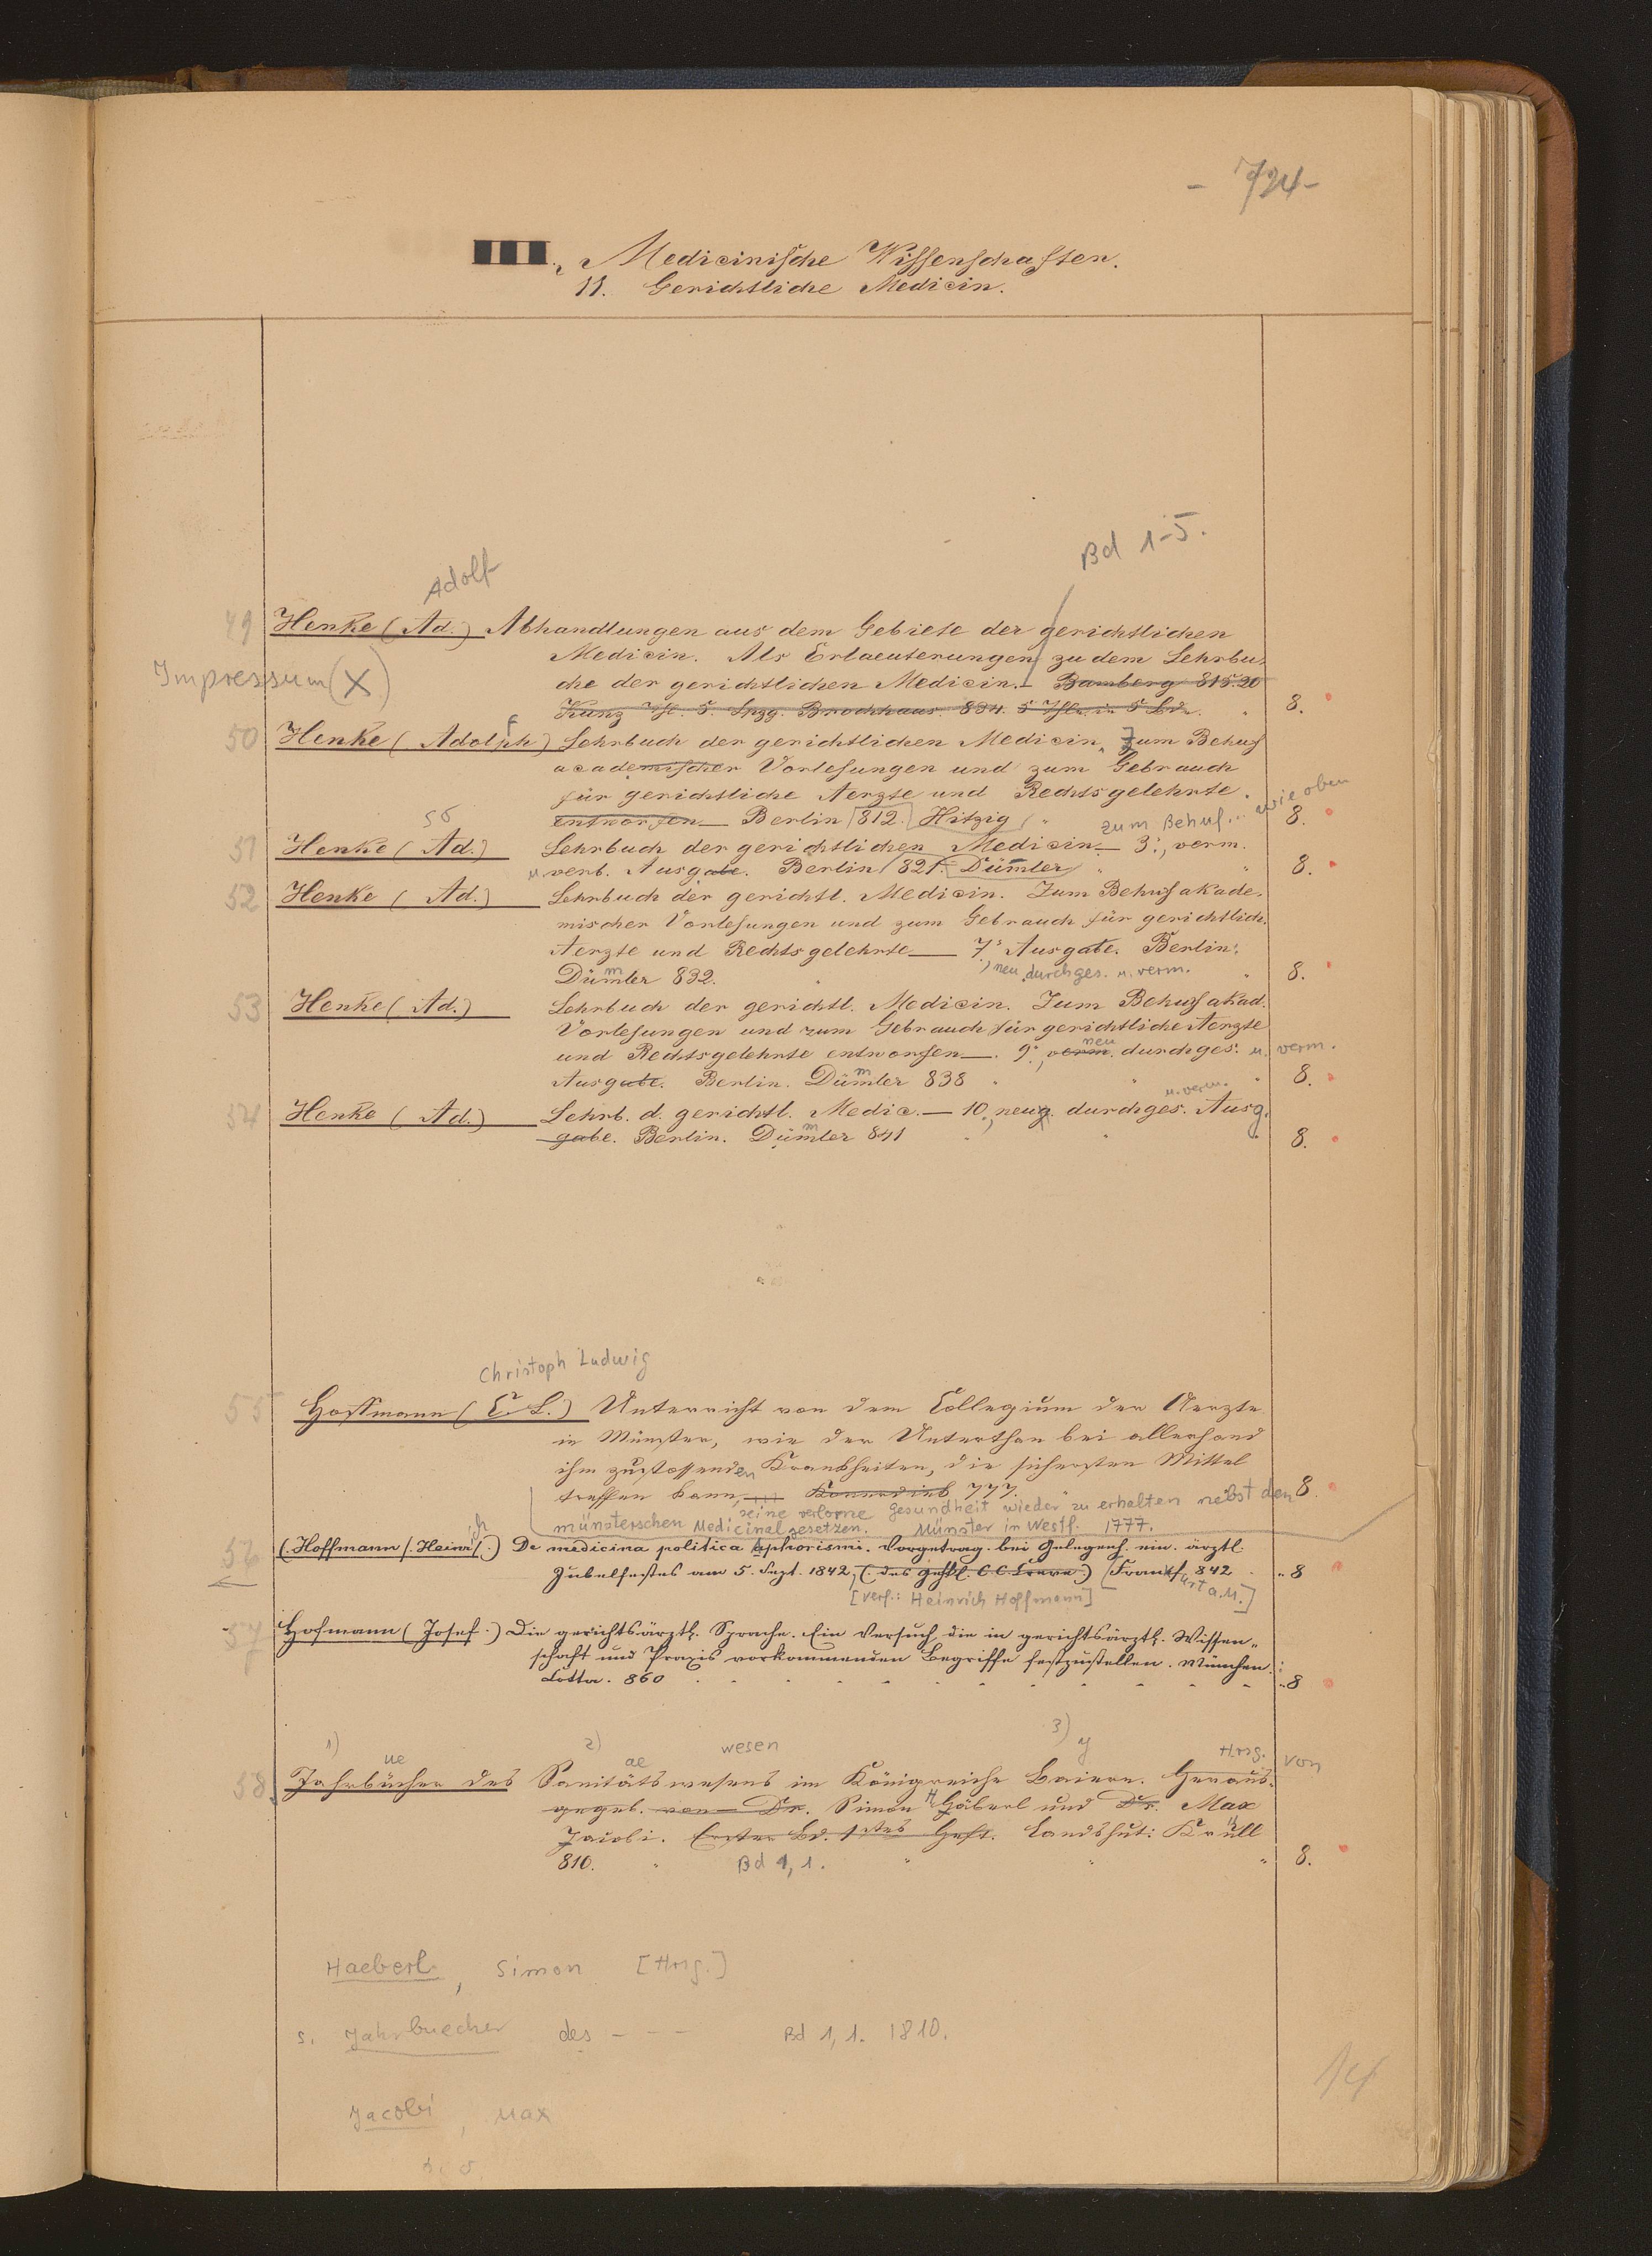 - 724 -
III. Medicinische Wissenschaften.
11. Gerichtliche Medicin.
Bd 1-5.
Adolf
49 Henke (Ad.) Abhandlungen aus dem Gebiete der gerichtlichen
Medicin. Als Erlaeuterungen zu dem Lehrbu-
Impressum (X)
che der gerichtlichen Medicin. — Bamberg 815.20
Kunz Thl. 5. Lpzg. Brockhaus. 834. 5 Thle. in 5 Bde. " 8.
50 Henke (Adolph) f Lehrbuch der gerichtlichen Medicin, Zum Behuf
academischer Vorlesungen und zum Gebrauch
für gerichtliche Aerzte und Rechtsgelehrte.
entworfen — Berlin 812. Hitzig " 8.
zum Behuf... wie oben
51 Henke (Ad.) Lehrbuch der gerichtlichen Medicin — 3., verm.
u. verb. Ausgabe. Berlin 821. Dümler " " 8.
52 Henke (Ad.) Lehrbuch der gerichtl. Medicin. Zum Behuf akade-
mischer Vorlesungen und zum Gebrauch für gerichtlich.
Aerzte und Rechtsgelehrte — 7. Ausgabe. Berlin:
, neu durchges. u. verm.
Dümler 832. " " 8.
53 Henke (Ad.) Lehrbuch der gerichtl. Medicin. Zum Behuf akad.
Vorlesungen und zum Gebrauch für gerichtliche Aerzte
neu
und Rechtsgelehrte entworfen —. 9., verm. durchges. u. verm.
Ausgabe. Berlin. Dümler 838 " " " 8.
u. verm.
54 Henke (Ad.) Lehrb. d. gerichtl. Medic. — 10., neu durchges. Ausg.
gabe. Berlin. Dümler 841 " " " 8.
Christoph Ludwig
55 Hoffmann (C. L.) Unterricht von dem Collegium der Aerzte
in Münster, wie der Unterthan bei allerhand
ihm zustossenden Krankheiten, die sichersten Mittel
treffen kann, 777. " 8.
seine verlorne Gesundheit wieder zu erhalten nebst den
münsterschen Medicinalgesetzen. Münster in Westf. 1777.
56 (Hoffmann /. Heinrich.) De medicina politica aphorismi. Vorgetrag. bei Gelegenh. ein. ärztl.
Jubelfestes am 5. Sept. 1842, (Frankfurt a. M.] 842 " 8
[Verf.: Heinrich Hoffmann]
57 Hofmann (Josef.) Die gerichtsärztl. Sprache. Ein Versuch, die in gerichtsärztl. Wissen-
schaft und Praxis vorkommenden Begriffe festzustellen. München:
Cotta. 860 " 8
1) ue 2) ae wesen 3) y Hrsg. von
58. Jahrbücher des Sanitätswesens im Königreiche Baiern. Heraus-
gegeb. von Dr. Simon Häberl und Dr. Max
Jacobi. Erster Bd. 1stes Heft. Landshut: Krüll
810. " Bd 1,1. " " " 8.
Haeberl, Simon [Hrsg.]
s. Jahrbuecher des - - - Bd 1,1. 1810.
Jacobi, Max
14